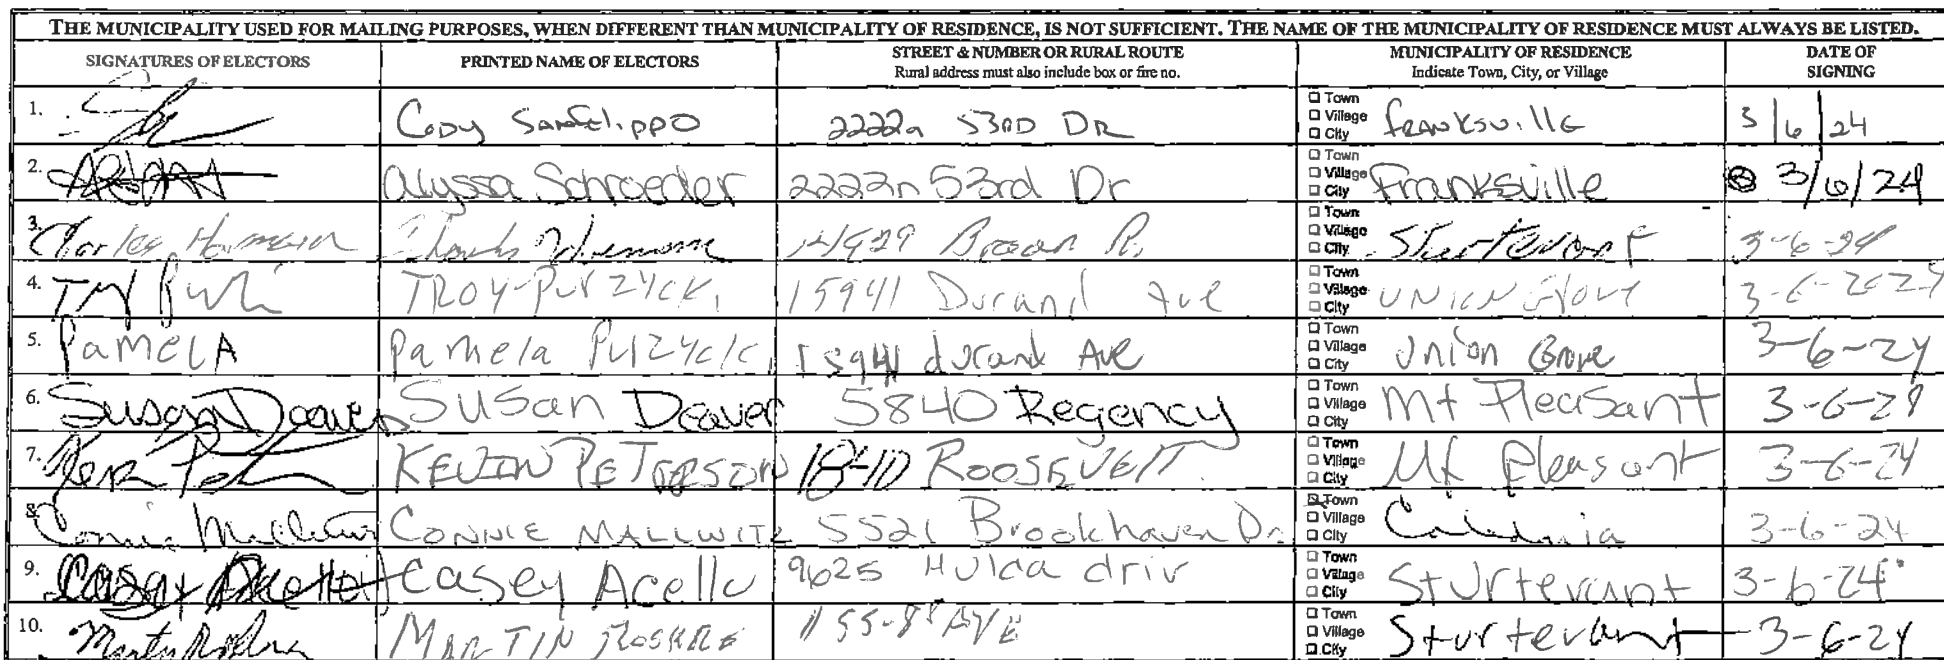 THE MUNICIPALITY USED FOR MAILING PURPOSES, WHEN DIFFERENT THAN MUNICIPALITY OF RESIDENCE, IS NOT SUFFICIENT. THE NAME OF THE MUNICIPALITY OF RESIDENCE MUST ALWAYS BE LISTED.
SIGNATURES OF ELECTORS PRINTED NAME OF ELECTORS STREET & NUMBER OR RURAL ROUTE MUNICIPALITY OF RESIDENCE DATE OF
Rural address must also include box or fire no. Indicate Town, City, or Village SIGNING
1. CODY SANFELIPPO 53RD DR Town Village City franksville 3/6/24
2. Alyssa Schroeder 2222n 53rd Dr Town Village City Franksville 3/6/24
3. Charles Town Village City Sturtevant 3-6-24
4. TROY 15941 Durand Ave Town Village City UNION Grove 3-6-2024
5. PamelA Pamela 15941 durand Ave Town Village City Union Grove 3-6-24
6. Susan Deaver Susan Deaver 5840 Regency Town Village City Mt Pleasant 3-6-24
7. KEVIN PETERSON ROOSEVELT Town Village City Mt Pleasant 3-6-24
8. Connie CONNIE MALLWITZ 5521 Brookhaven Dr Town Village City Caledonia 3-6-24
9. Casey Casey 9625 driv Town Village City Sturtevant 3-6-24
10. MARTIN AVE Town Village City Sturtevant 3-6-24